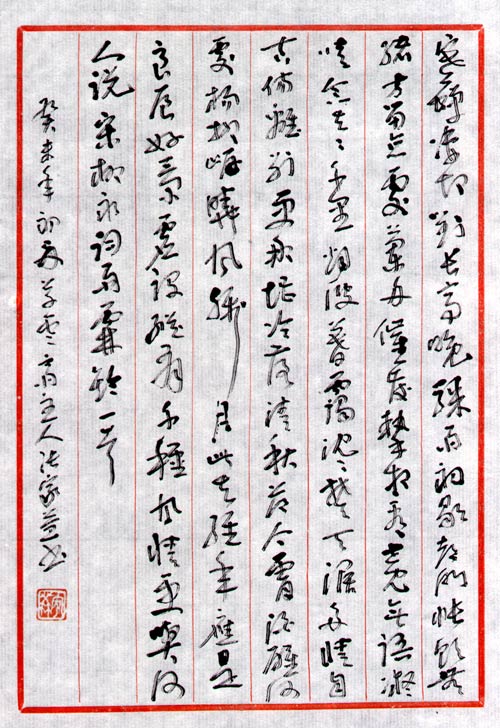 寒蝉凄切對长亭晚骤雨初歇都门帐饮无
绪方留恋處蘭舟催发执手相看竟无语凝
噎念去去千里烟波暮霭沉沉楚天阔多情自
古伤离别更那堪冷落清秋节今宵酒醒何
處杨柳岸晓风残月此去经年應是
良辰好景虚设纵有千種风情更與何
人说宋柳永词雨霖铃一首
癸未年初夏草雲斋主人张家益书